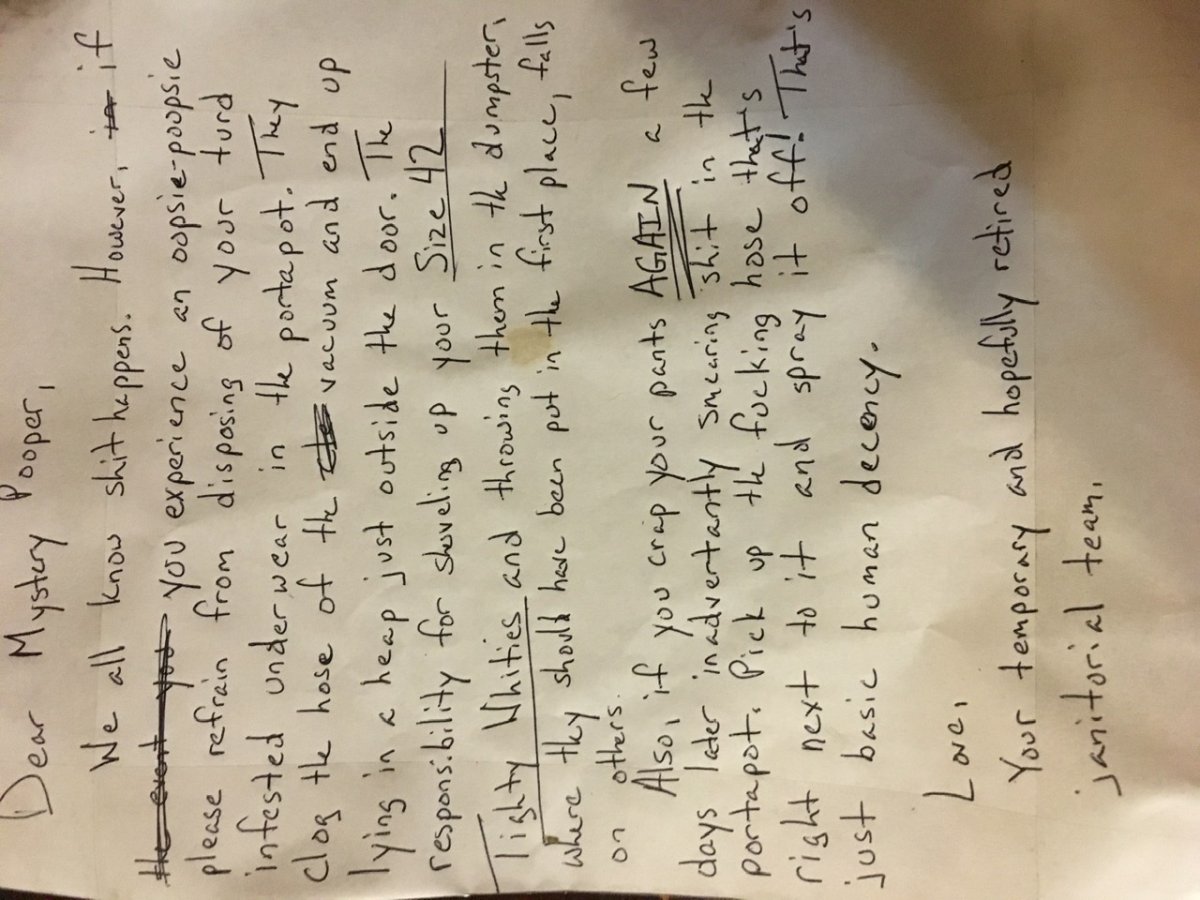 Dear Mystery Pooper,
We all know shit happens. However, in if
the event you you experience an oopsie-poopsie
please refrain from disposing of your turd
infested underwear in the portapot. They
clog the hose of the vacuum and end up
lying in a heap just outside the door. The
responsibility for shoveling up your Size 42
Tighty Whities and throwing them in the dumpster,
where they should have been put in the first place, falls
on others.
Also, if you crap your pants AGAIN a few
days later inadvertantly smearing shit in the
portapot. Pick up the fucking hose that's
right next to it and spray it off! That's
just basic human decency.
Love,
Your temporary and hopefully retired
janitorial team.